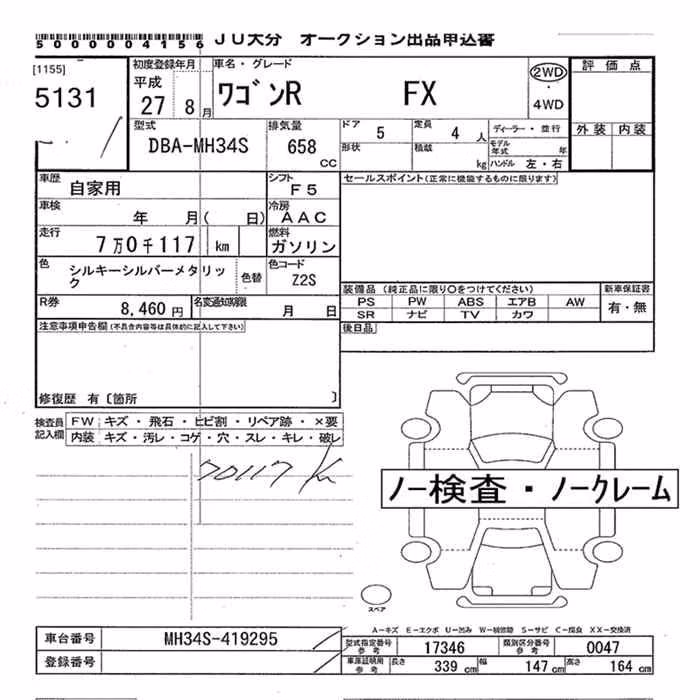 50000004156 JU大分 オークション出品申込書
[1155]
5131
初度登録年月
平成
27 8月
車名・グレード
ワゴンR FX
2WD
・
4WD
評価点
外装 内装
型式
DBA-MH34S
排気量
658
cc
ドア 5
定員 4 人
形状
積載 kg
ディーラー・並行
モデル年式 年
ハンドル 左・右
車歴 自家用
シフト F5
セールスポイント(正常に機能するものに限ります)
車検 年 月( 日)
冷房 AAC
走行 7万0千117 km
燃料 ガソリン
色 シルキーシルバーメタリック
色替
色コード Z2S
R券 8,460円
名変通知期限 月 日
装備品(純正品に限り○をつけてください)
新車保証書
PS PW ABS エアB AW
SR ナビ TV カワ
有・無
後日品
注意事項申告欄(不具合内容等は具体的に記入して下さい)
修復歴 有〔箇所 〕
検査員記入欄
FW キズ・飛石・ヒビ割・リペア跡・×要
内装 キズ・汚レ・コゲ・穴・スレ・キレ・破レ
70117 Km
ノー検査・ノークレーム
スペア
A-キズ E-エクボ U-凹み W-補修跡 S-サビ C-腐食 XX-交換済
車台番号 MH34S-419295
登録番号
型式指定番号参考 17346
類別区分番号参考 0047
車庫証明用参考 長さ 339 cm 幅 147 cm 高さ 164 cm